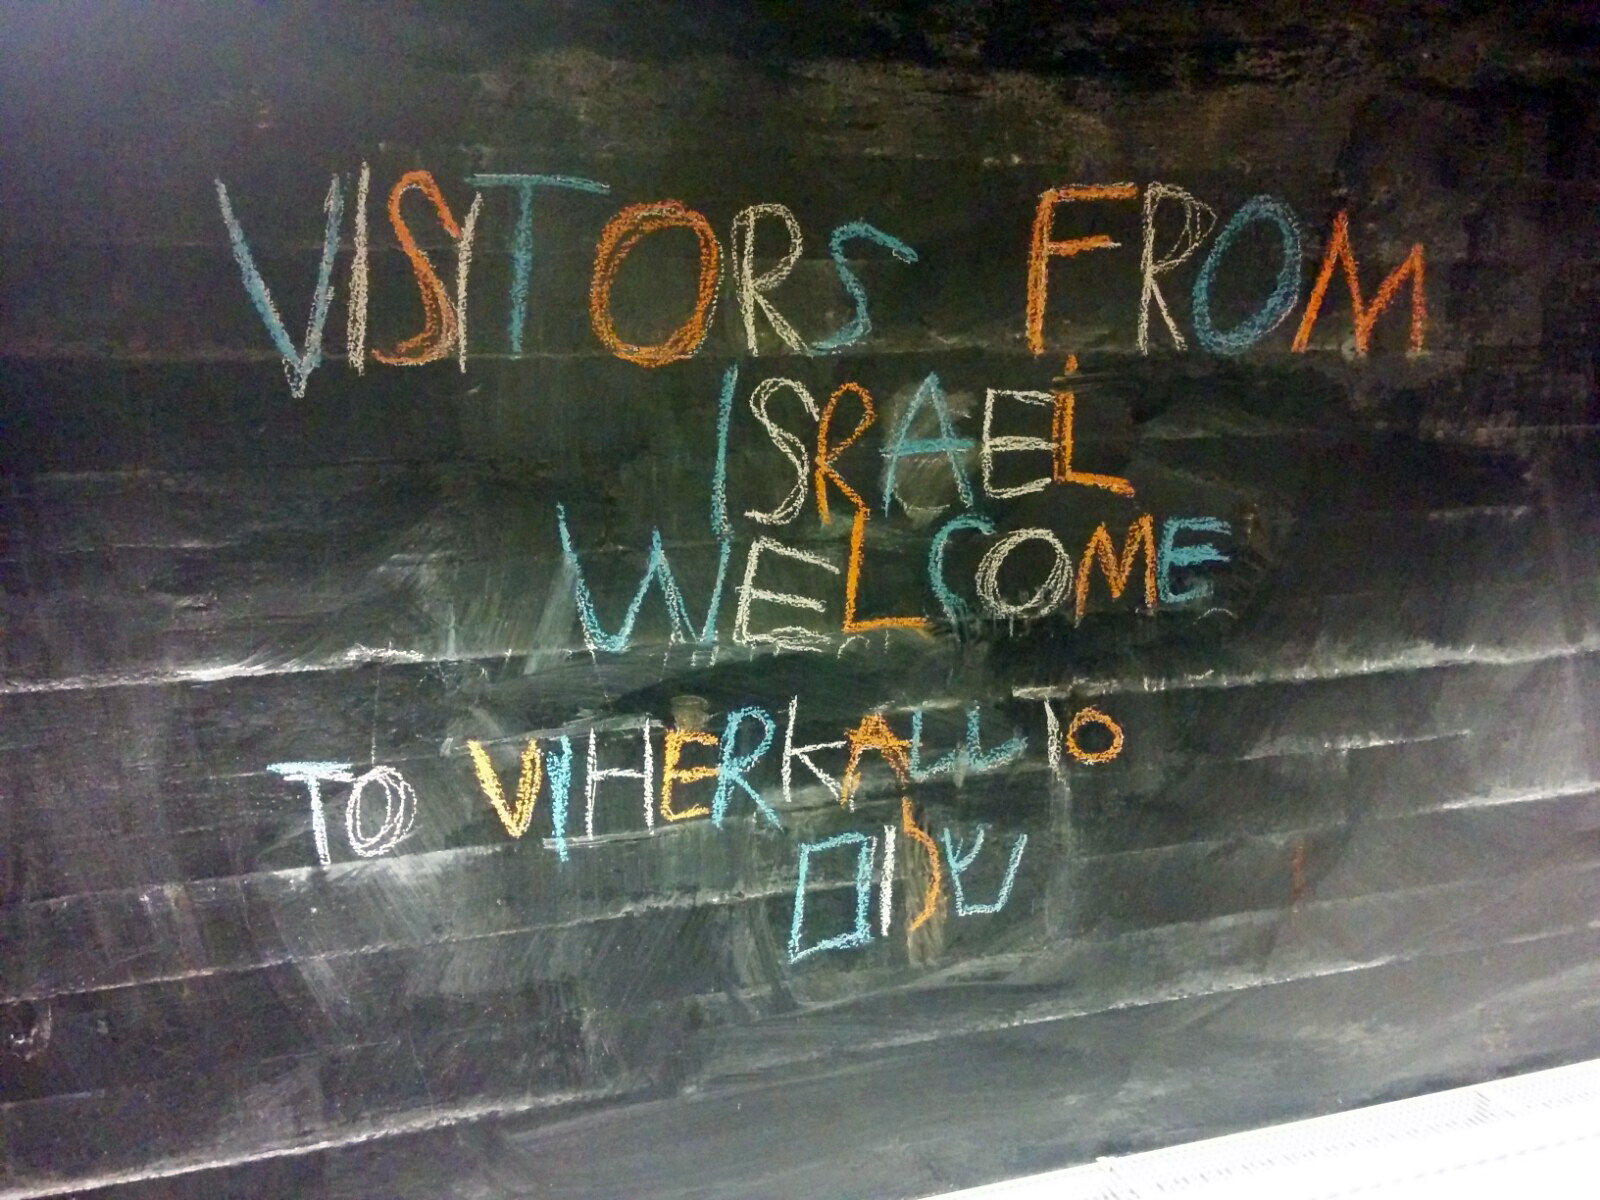 VISITORS FROM
ISRAEL
WELCOME
TO VIHERKALLIO
שלום